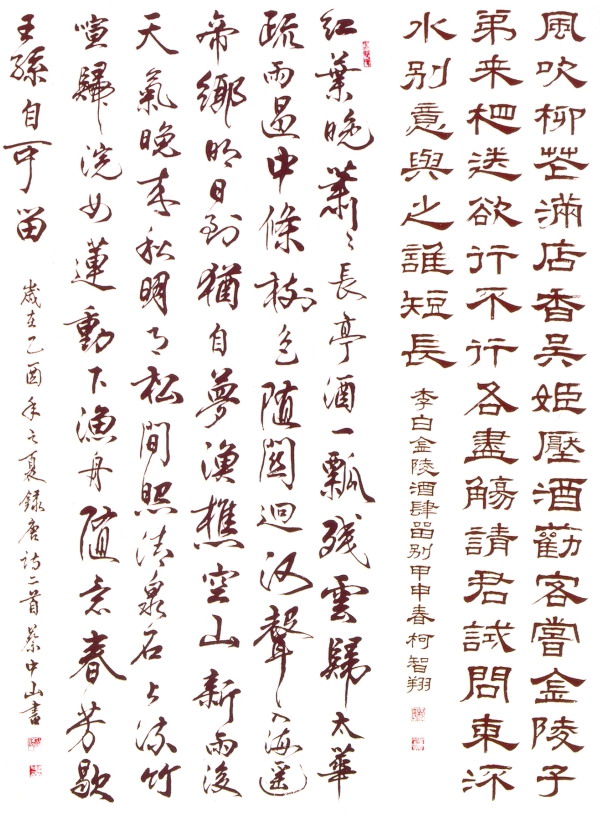 風吹柳花滿店香吳姬壓酒勸客嘗金陵子
弟来相送欲行不行各盡觴請君試問東流
水別意與之誰短長
李白金陵酒肆留別甲申春柯智翔
紅葉晚蕭々長亭酒一瓢残雲歸太華
疏雨過中條樹色隨關迴河聲入海遥
帝鄉明日到猶自夢漁樵空山新雨後
天氣晚来秋明月松間照清泉石上流竹
喧歸浣女蓮動下漁舟隨意春芳歇
王孫自可留
歲在乙酉年之夏錄唐詩二首蔡中山書